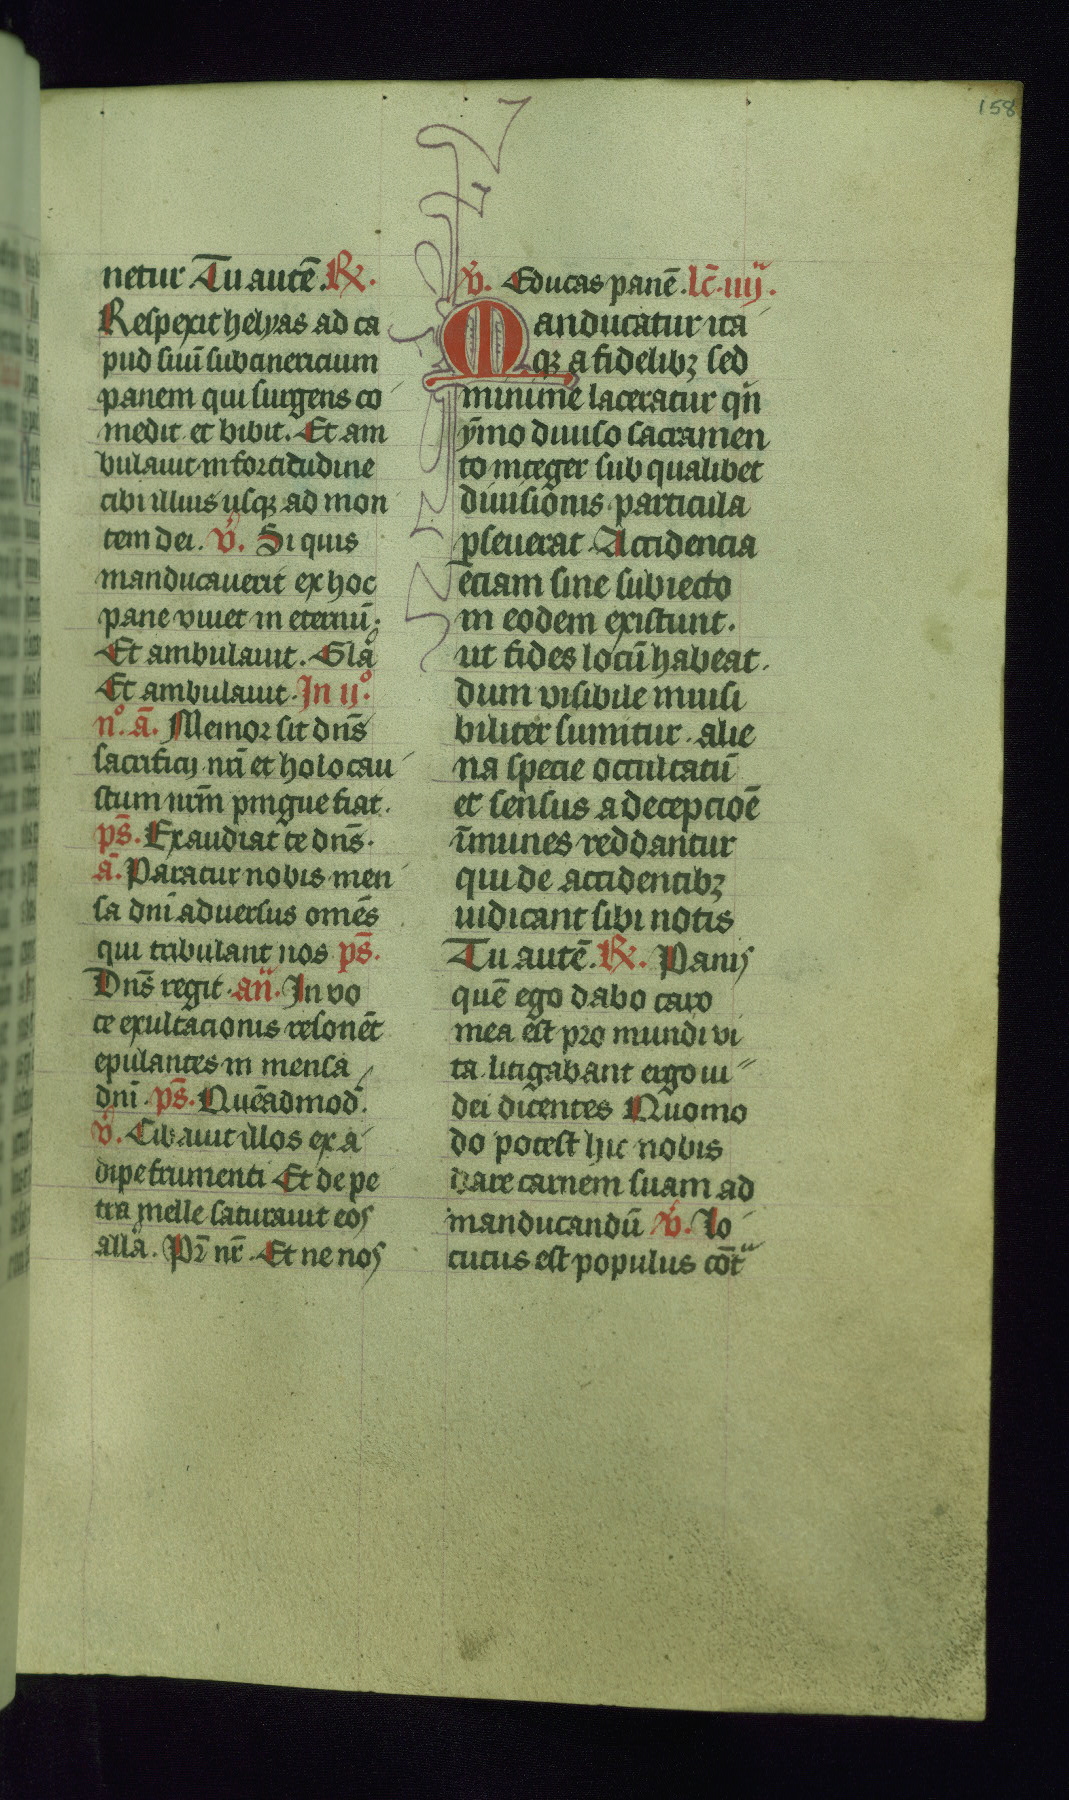 158
netur Tu autē. R℣.
Respexit helyas ad ca
pud suū subcinericium
panem qui surgens co
medit et bibit. Et am
bulauit in fortitudine
cibi illius usqꝫ ad mon
tem dei. v̊. Si quis
manducauerit ex hoc
pane viuet in eternū;
Et ambulauit. Gl̄a
Et ambulauit. In ii°
n°. a͞. Memor sit dn̄s
sacrificij nr̄i et holocau
stum nr̄m pingue fiat.
ps̄. Exaudiat te dn̄s.
a͞. Paratur nobis men
sa dn̄i aduersus om̄es
qui tribulant nos ps̄.
Dn̄s regit. an̄. In vo
ce exultacionis resonēt
epulantes in mensa
dn̄i. ps̄. Quēadmod̄.
v̊. Cibauit illos ex a
dipe frumenti Et de pe
tra melle saturauit eos
all̄a. Pr̄ nr̄. Et ne nos
v̊. Educas panē. lc̄. iiij.
Manducatur ita
qꝫ a fidelibꝫ sed
minime laceratur qn̄
ymo diuiso sacramen
to integer sub qualibet
diuisionis particula
pseuerat. Accidencia
eciam sine subiecto
in eodem existunt.
ut fides locū habeat.
dum visibile inuisi
biliter sumitur. alie
na specie occultatū
et sensus a decepcioē
īmunes reddantur
qui de accidentibꝫ
iudicant sibi notis
Tu autē. R℣. Panis
quē ego dabo caro
mea est pro mundi vi
ta litigabant ergo iu
dei dicentes Quomo
do potest hic nobis
dare carnem suam ad
manducandū v̊. Lo
cutus est populus cōt